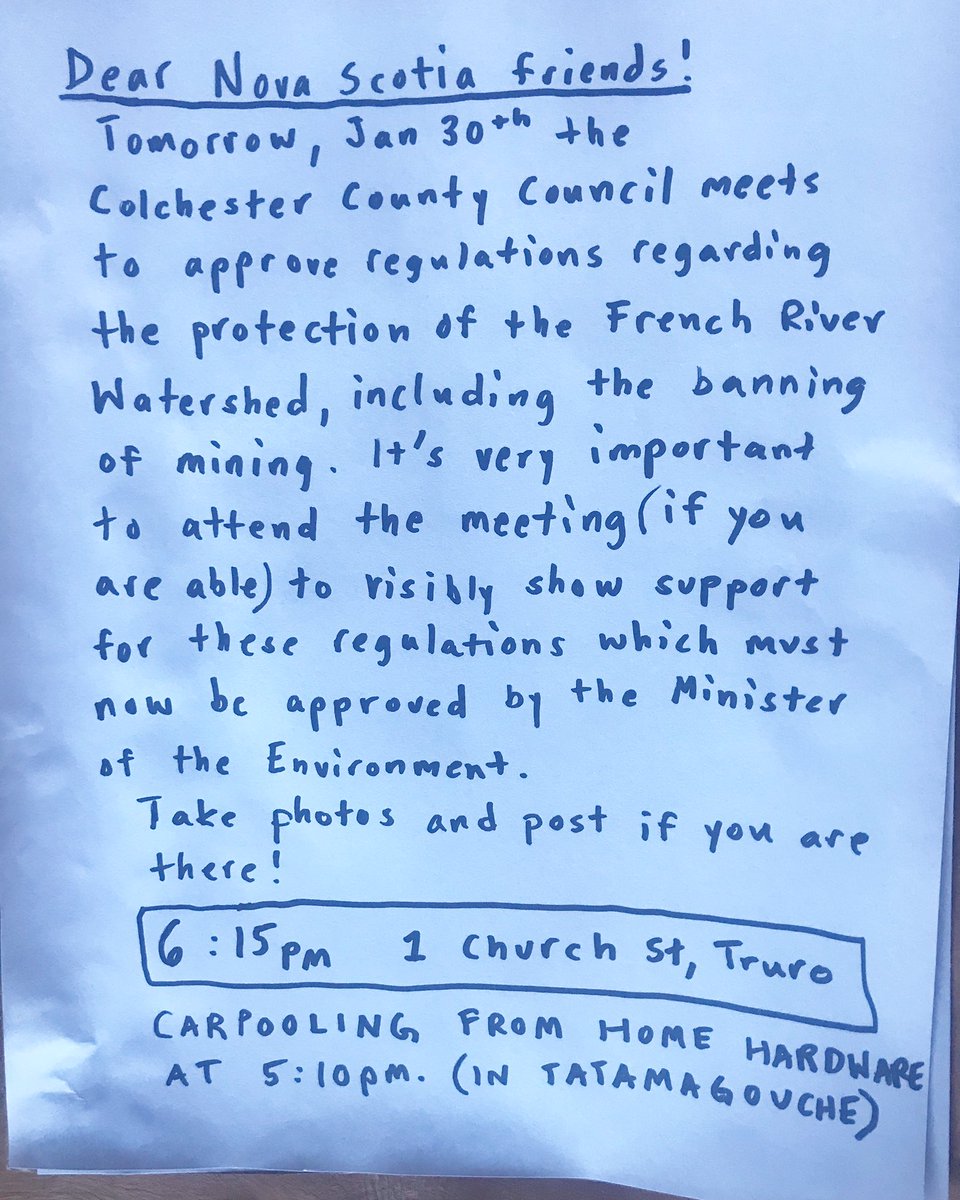 Dear Nova Scotia friends!
Tomorrow, Jan 30th the
Colchester County Council meets
to approve regulations regarding
the protection of the French River
Watershed, including the banning
of mining. It's very important
to attend the meeting (if you
are able) to visibly show support
for these regulations which must
now be approved by the Minister
of the Environment.
Take photos and post if you are
there!
6:15pm 1 Church St, Truro
CARPOOLING FROM HOME HARDWARE
AT 5:10pm. (IN TATAMAGOUCHE)